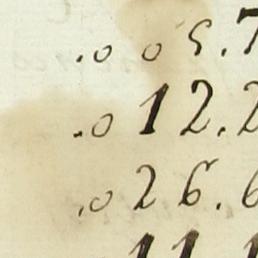 .0 0 5.7
.0 1 2.2
.0 2 6.6
1 1 1